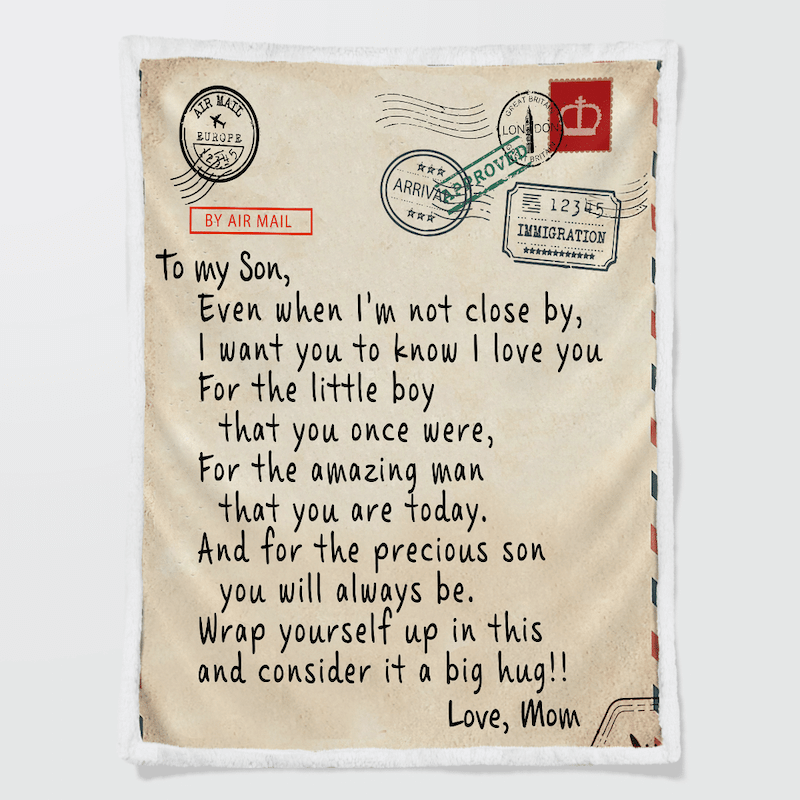 AIR MAIL
EUROPE
12345
BY AIR MAIL
GREAT BRITAIN
LONDON
GREAT BRITAIN
ARRIVAL
APPROVED
12345
IMMIGRATION
To my Son,
Even when I'm not close by,
I want you to know I love you
For the little boy
that you once were,
For the amazing man
that you are today.
And for the precious son
you will always be.
Wrap yourself up in this
and consider it a big hug!!
Love, Mom